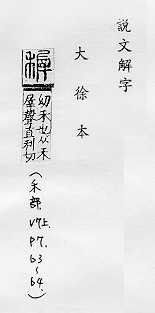 說文解字
大徐本
稺
幼禾也从禾
屖聲直利切
（禾部V7上.P7.63～64.）